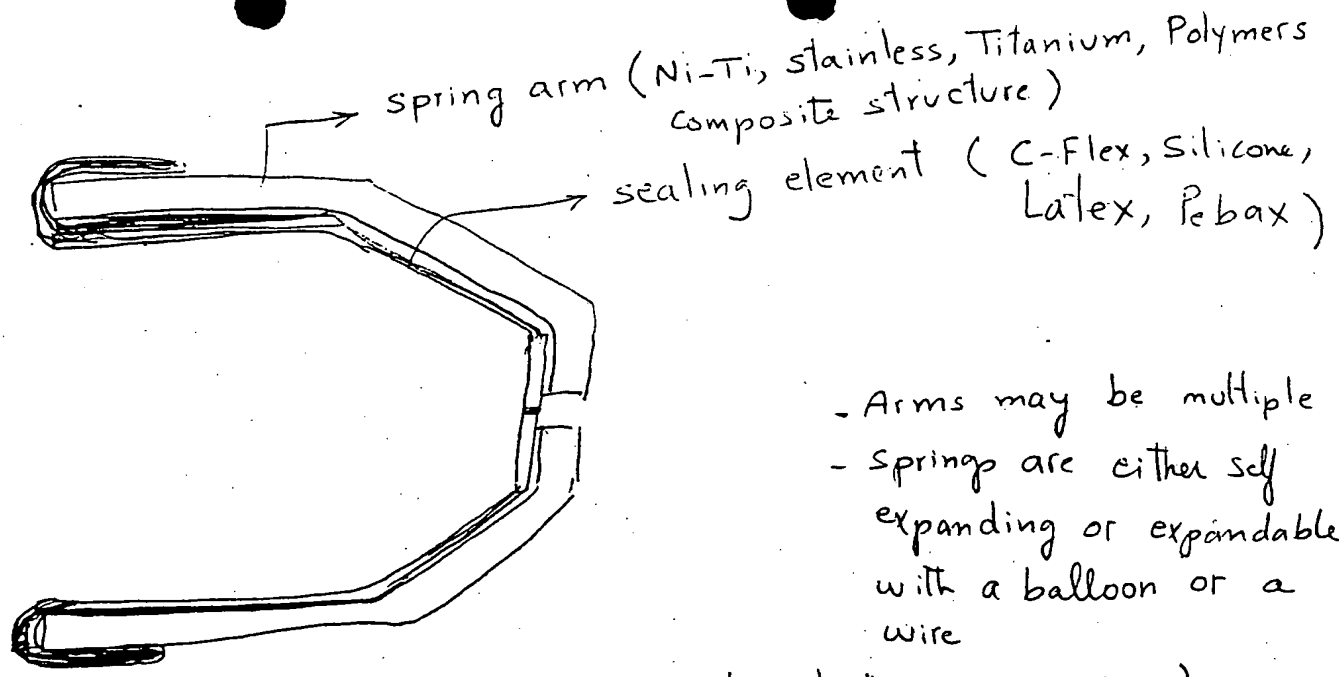 spring arm (Ni-Ti, stainless, Titanium, Polymers
composite structure)
sealing element ( C-Flex, Silicone,
Latex, Pebax)
- Arms may be multiple
- springs are either self
expanding or expandable
with a balloon or a
wire